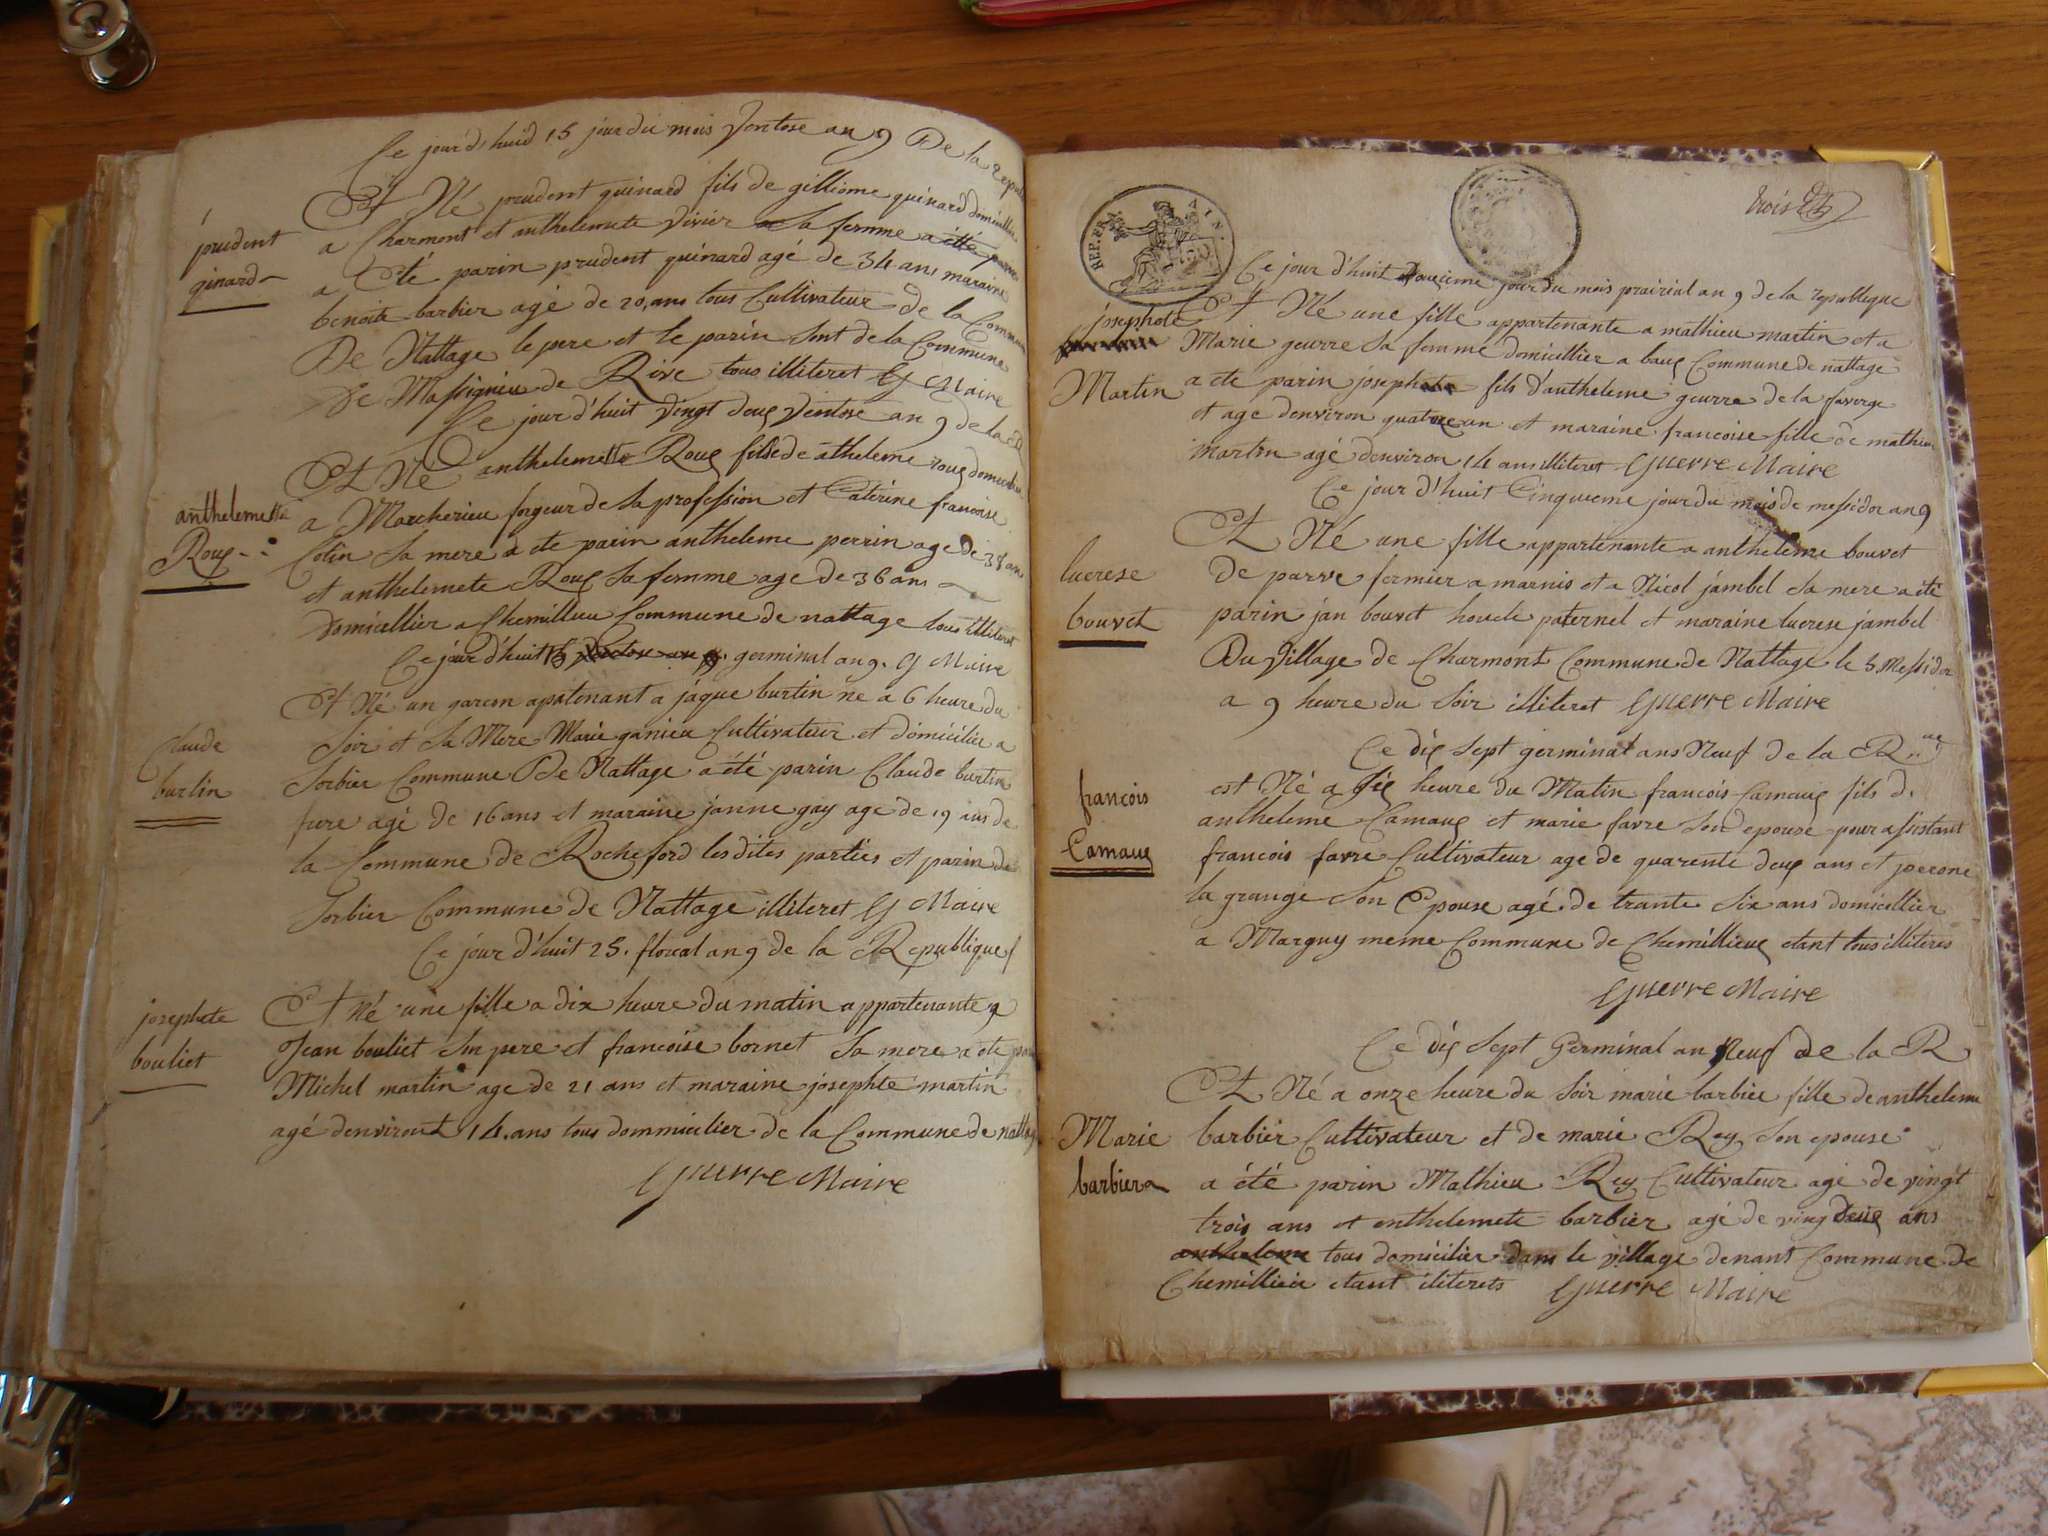 Ce jour d'huid 15 jour du mois Ventose an 9 De la repu
prudent
ginard
Et Né prudent guinard fils de gilliome guinard domicillier
a Charmont et anthelemete Vivier sa femme a été
a Eté parin prudent guinard agé de 34 ans maraine
benoite barbier agé de 20 ans tous Cultivateur de la Commune
De Nattage le pere et le parin sont de la Commune
de Massignieu de Rive tous illiteret G Maire
Ce jour d'huit vingt deux Ventose an 9 de la
anthelemette
Roux
Et Né anthelemette Roux fille de atheleme roux
a Marcherieu forgeur de sa profession et Caterine francoise
Colin sa mere a ete parin antheleme perrin age de 38 ans
et anthelemete Roux sa femme age de 36 ans
domicillier a Chemillieu Commune de nattage tous illiteret
Ce jour d'huit 15 germinal an 9. G Maire
Claude
burtin
Et Né un garcon apatenant a jaque burtin ne a 6 heure du
soir et sa Mere Marie ganieu Cultivateur et domicilier a
Sorbier Commune De Nattage a été parin Claude burtin
frere agé de 16 ans et maraine janne gay age de 19 ans de
la Commune de Rocheford les dites parties et parin de
Sorbier Commune de Nattage illiteret G Maire
Ce jour d'huit 25. floreal an 9 de la Republique
josephete
bouliet
Et né une fille a dix heure du matin appartenante a
Jean bouliet son pere et francoise bornet sa mere a ete
Michel martin age de 21 ans et maraine josephte martin
agé denviront 14 ans tous dommicilier de la Commune de nattage
Guerre Maire
trois
REP. FRA. AIN.
Ce jour d'huit douzieme jour du mois prairial an 9 de la republieque
josephete
Martin
Et Né une fille appartenante a mathieu martin et a
Marie geurre sa femme domicillier a baux Commune de nattage
a ete parin joseph fils d'antheleme geurre de la faverge
et age denviron quatorze an et maraine francoise fille de mathieu
martin agé denviron 14 ans illiteret Guerre Maire
Ce jour d'huit Cinquieme jour du mois de messidor an 9
lucrese
bouvet
Et Né une fille appartenante a antheleme bouvet
de parve fermier a marnis et a Nicol jambel sa mere a été
parin jan bouvet houcle paternel et maraine lucrese jambel
Du Village de Charmont Commune de Nattage le 5 Messidor
a 9 heure du Soir illiteret Guerre Maire
Ce dix sept germinal ans Neuf de la R..ue
françois
Camaux
est Né a six heure du Matin francois Camaux fils d.
antheleme Camaux et marie favre son epouse pour assistant
francois favre Cultivateur age de quarente deux ans et perone
la grange son Epouse agé de trante Six ans domicillier
a Marguy meme Commune de Chemillieux etant tous illiteres
Guerre Maire
Ce dix Sept Germinal an Neuf de la R
Marie
barbier
Et Né a onze heure du soir marie barbier fille de antheleme
barbier Cultivateur et de marie Rey Son epouse
a été parin Mathieu Rey Cultivateur age de vingt
trois ans et enthelemete barbier agé de ving deux ans
antheleme tous domicilier dans le village denant Commune de
Chemillieu etant iliterets Guerre Maire